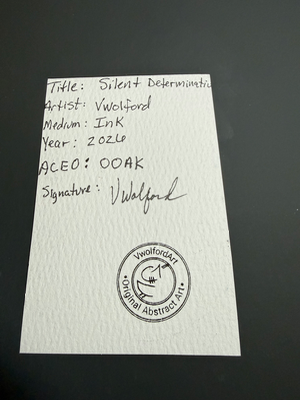 Title: Silent Determinatio
Artist: Vwolford
Medium: Ink
Year: 2026
ACEO: OOAK
Signature: VWolford
VwolfordArt
Original Abstract Art